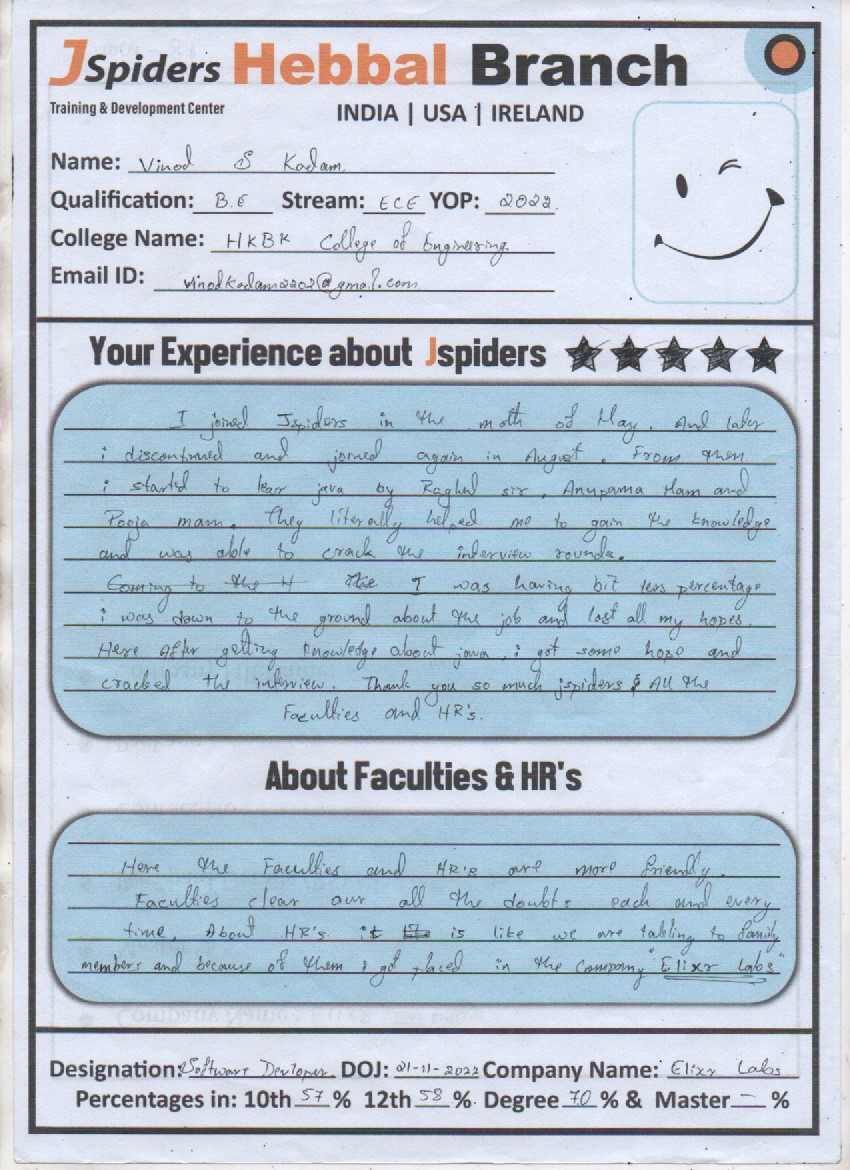 JSpiders Hebbal Branch
Training & Development Center
INDIA | USA | IRELAND
Name: Vinod S Kadam
Qualification: B.E Stream: ECE YOP: 2022
College Name: HKBK College of Engineering
Email ID: vinodkadam2202@gmail.com
Your Experience about Jspiders
I joined Jspiders in the moth of May. And later
i discontinued and joined again in August. From then
i started to lear java by Raghul sir, Anupama Mam and
Pooja mam. They literally helped me to gain the knowledge
and was able to crack the interview rounds.
Coming to the H The I was having bit less percentage
i was down to the ground about the job and lost all my hopes.
Here After getting knowledge about java, i got some hope and
cracked the interview. Thank you so much jspiders & All the
Faculties and HR's.
About Faculties & HR's
Here the Faculties and HR's are more friendly.
Faculties clear our all the doubts each and every
time, About HR's it is like we are talking to family
members and because of them i got placed in the company "Elixr Labs"
Designation: Software Devloper DOJ: 21-11-2022 Company Name: Elixr Labs
Percentages in: 10th 57 % 12th 58 % Degree 70 % & Master — %